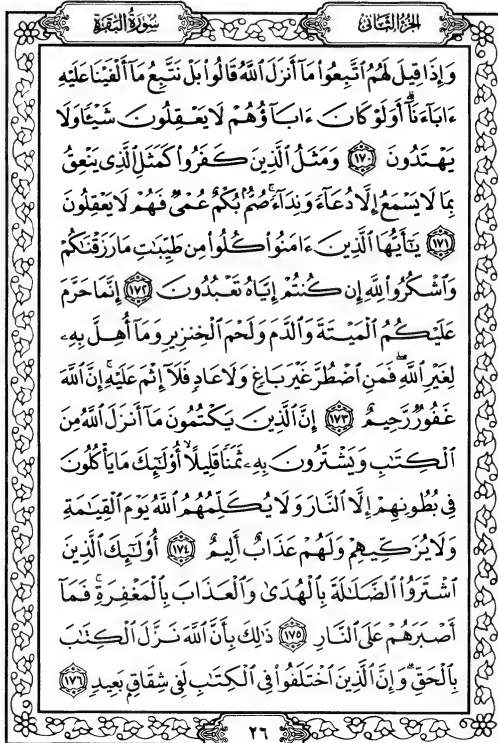 سُورَةُ البَقَرَةِ
الجزء الثاني
وَإِذَا قِيلَ لَهُمُ ٱتَّبِعُوا۟ مَآ أَنزَلَ ٱللَّهُ قَالُوا۟ بَلْ نَتَّبِعُ مَآ أَلْفَيْنَا عَلَيْهِ
ءَابَآءَنَآ أَوَلَوْ كَانَ ءَابَآؤُهُمْ لَا يَعْقِلُونَ شَيْـًٔا وَلَا
يَهْتَدُونَ ١٧٠ وَمَثَلُ ٱلَّذِينَ كَفَرُوا۟ كَمَثَلِ ٱلَّذِى يَنْعِقُ
بِمَا لَا يَسْمَعُ إِلَّا دُعَآءً وَنِدَآءً ۚ صُمٌّۢ بُكْمٌ عُمْىٌ فَهُمْ لَا يَعْقِلُونَ
١٧١ يَـٰٓأَيُّهَا ٱلَّذِينَ ءَامَنُوا۟ كُلُوا۟ مِن طَيِّبَـٰتِ مَا رَزَقْنَـٰكُمْ
وَٱشْكُرُوا۟ لِلَّهِ إِن كُنتُمْ إِيَّاهُ تَعْبُدُونَ ١٧٢ إِنَّمَا حَرَّمَ
عَلَيْكُمُ ٱلْمَيْتَةَ وَٱلدَّمَ وَلَحْمَ ٱلْخِنزِيرِ وَمَآ أُهِلَّ بِهِۦ
لِغَيْرِ ٱللَّهِ ۖ فَمَنِ ٱضْطُرَّ غَيْرَ بَاغٍ وَلَا عَادٍ فَلَآ إِثْمَ عَلَيْهِ ۚ إِنَّ ٱللَّهَ
غَفُورٌ رَّحِيمٌ ١٧٣ إِنَّ ٱلَّذِينَ يَكْتُمُونَ مَآ أَنزَلَ ٱللَّهُ مِنَ
ٱلْكِتَـٰبِ وَيَشْتَرُونَ بِهِۦ ثَمَنًا قَلِيلًا ۙ أُو۟لَـٰٓئِكَ مَا يَأْكُلُونَ
فِى بُطُونِهِمْ إِلَّا ٱلنَّارَ وَلَا يُكَلِّمُهُمُ ٱللَّهُ يَوْمَ ٱلْقِيَـٰمَةِ
وَلَا يُزَكِّيهِمْ وَلَهُمْ عَذَابٌ أَلِيمٌ ١٧٤ أُو۟لَـٰٓئِكَ ٱلَّذِينَ
ٱشْتَرَوُا۟ ٱلضَّلَـٰلَةَ بِٱلْهُدَىٰ وَٱلْعَذَابَ بِٱلْمَغْفِرَةِ ۚ فَمَآ
أَصْبَرَهُمْ عَلَى ٱلنَّارِ ١٧٥ ذَٰلِكَ بِأَنَّ ٱللَّهَ نَزَّلَ ٱلْكِتَـٰبَ
بِٱلْحَقِّ ۗ وَإِنَّ ٱلَّذِينَ ٱخْتَلَفُوا۟ فِى ٱلْكِتَـٰبِ لَفِى شِقَاقٍۭ بَعِيدٍ ١٧٦
٢٦